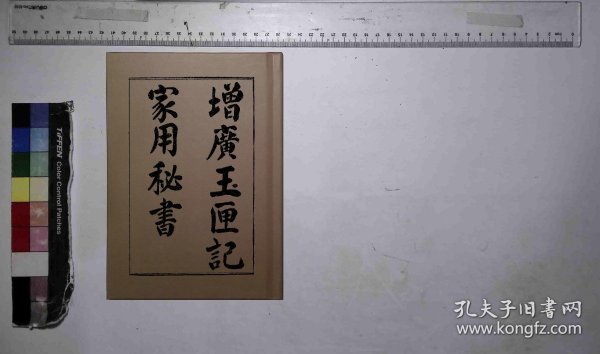 增廣玉匣記
家用秘書
TIFFEN Color Control Patches
孔夫子旧書网
www.kongfz.com